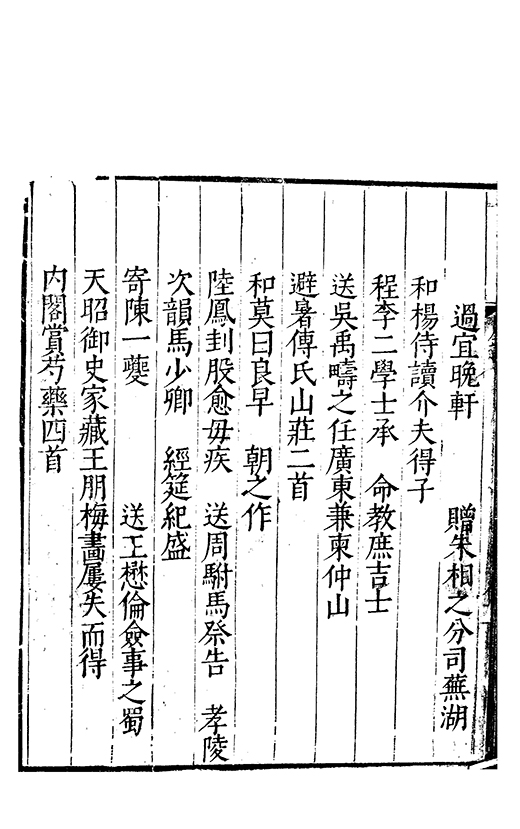 過宜晚軒　贈朱相之分司蕪湖
和楊侍讀介夫得子
程李二學士承　命教庶吉士
送吳禹疇之任廣東兼柬仲山
避暑傅氏山莊二首
和莫曰良早　朝之作
陸鳳刲股愈母疾　送周駙馬祭告　孝陵
次韻馬少卿　經筵紀盛
寄陳一夔　送王懋倫僉事之蜀
天昭御史家藏王朋梅畫屢失而得
內閣賞芍藥四首